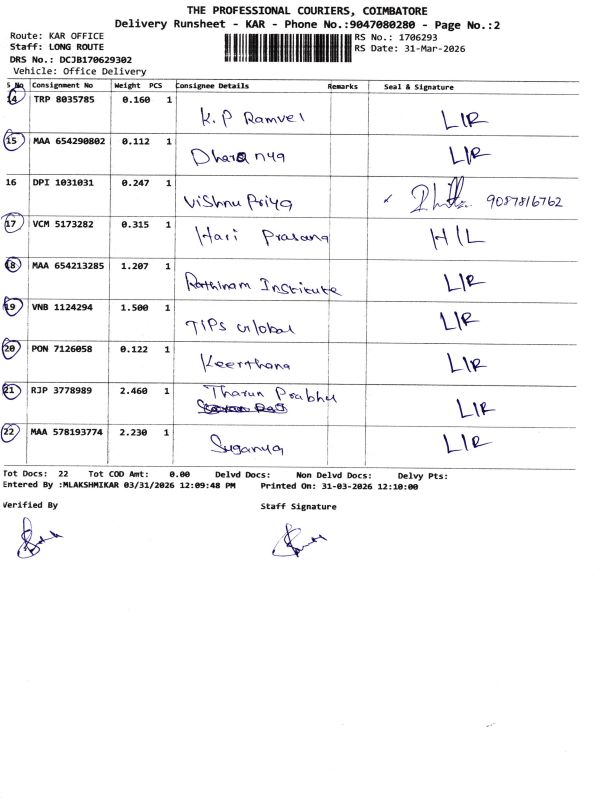 THE PROFESSIONAL COURIERS, COIMBATORE
Delivery Runsheet - KAR - Phone No.:9047080280 - Page No.:2
Route: KAR OFFICE RS No.: 1706293
Staff: LONG ROUTE RS Date: 31-Mar-2026
DRS No.: DCJB170629302
Vehicle: Office Delivery
S No Consignment No Weight PCS Consignee Details Remarks Seal & Signature
14 TRP 8035785 0.160 1 K.P Ramvel LIR
15 MAA 654290802 0.112 1 Dharanya LIR
16 DPI 1031031 0.247 1 Vishnu Priya 9087816762
17 VCM 5173282 0.315 1 Hari Prasana HIL
18 MAA 654213285 1.207 1 Rathinam Institute LIR
19 VNB 1124294 1.500 1 TIPS Global LIR
20 PON 7126058 0.122 1 Keerthana LIR
21 RJP 3778989 2.460 1 Tharun Prabhu LIR
22 MAA 578193774 2.230 1 Suganya LIR
Tot Docs: 22 Tot COD Amt: 0.00 Delvd Docs: Non Delvd Docs: Delvy Pts:
Entered By :MLAKSHMIKAR 03/31/2026 12:09:48 PM Printed On: 31-03-2026 12:10:00
Verified By Staff Signature